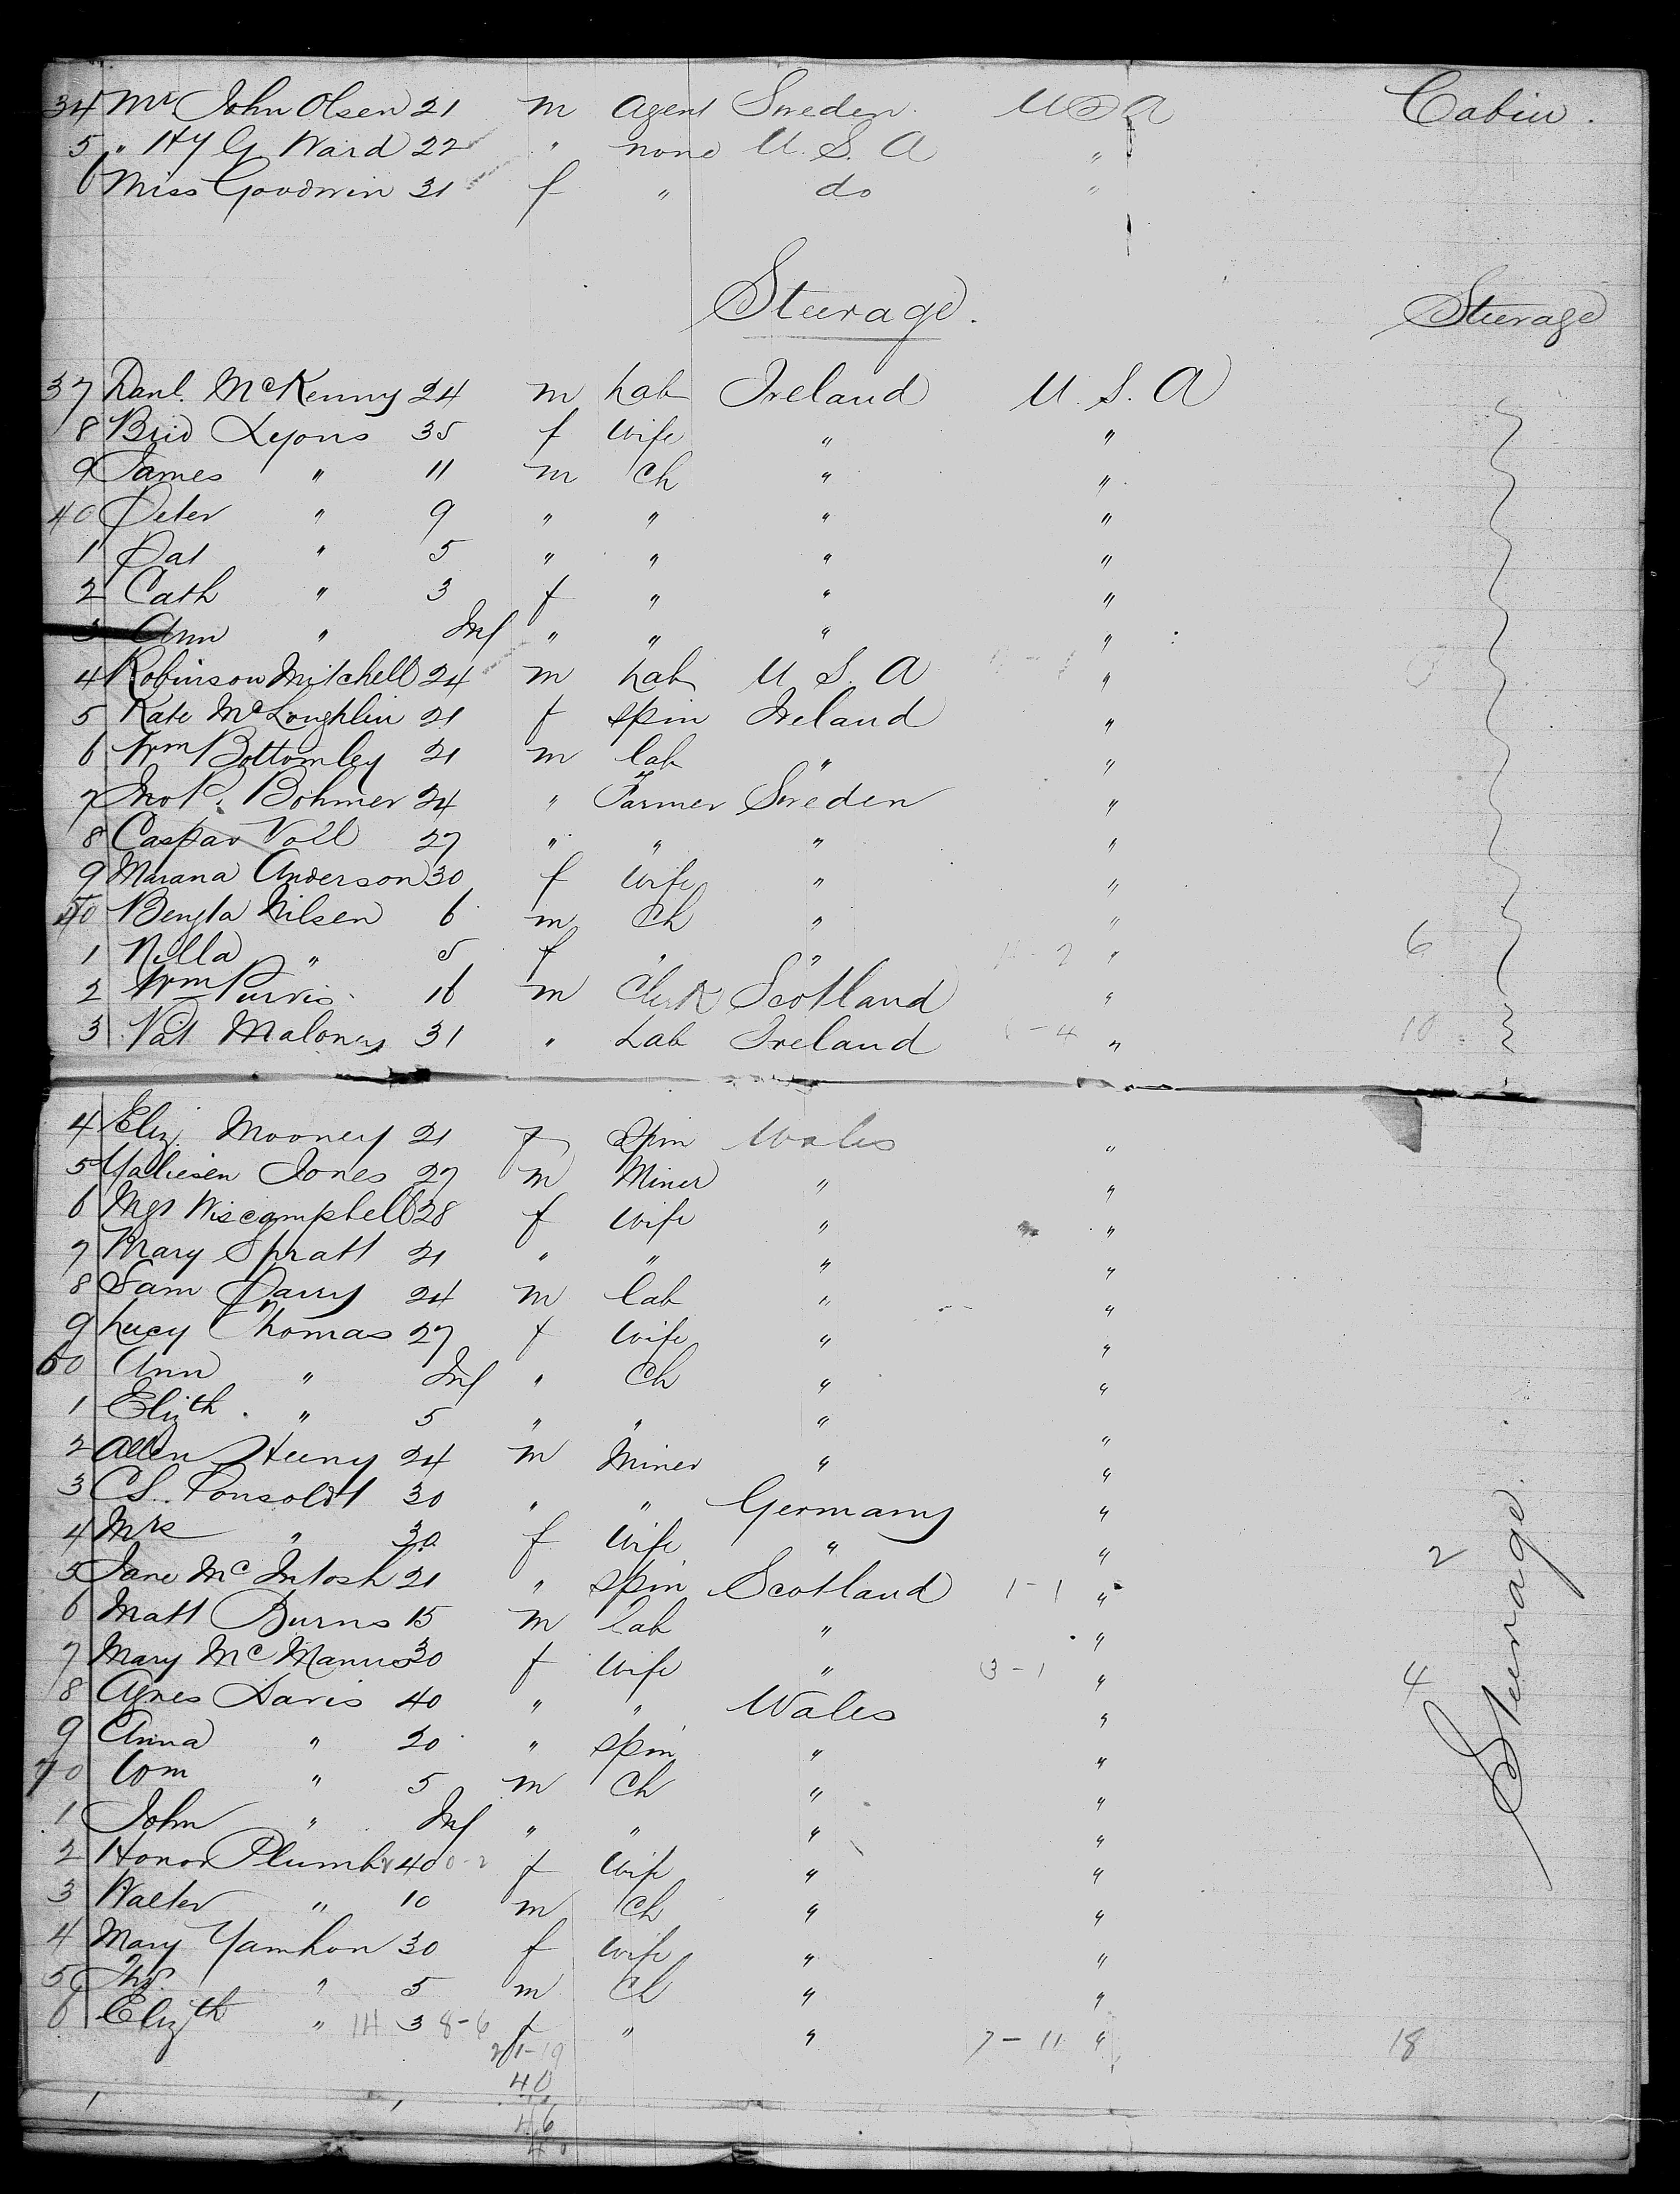 34 Mr John Olsen 21 m Agent Sweden U S A Cabin.
5 " Hy G Ward 22 " none U. S. A "
6 Miss Goodwin 31 f " do "
Steerage.
Steerage
37 Danl. McKenny 24 m Lab Ireland U. S. A
8 Brid Lyons 35 f Wife " "
9 James " 11 m Ch " "
40 Peter " 9 " " " "
1 Pat " 5 " " " "
2 Cath " 3 f " " "
3 Ann " Inf " " " "
4 Robinson Mitchell 24 m Lab U. S. A "
5 Kate McLoughlin 21 f spin Ireland "
6 Wm Bottomley 21 m lab " "
7 Jno P. Bohmer 24 " Farmer Sweden "
8 Caspar Voll 27 " " " "
9 Marana Anderson 30 f Wife " "
50 Bengta Nilsen 6 m Ch " "
1 Nilla " 5 f " " - 2 " 6
2 Wm Purvis 16 m Clerk Scotland "
3 Pat Maloney 31 " Lab Ireland - 4 " 10
4 Eliz. Mooney 21 f Spin Wales "
5 Jones 27 m Miner " "
6 Mgt Wiscampbell 28 f Wife " "
7 Mary Spratt 21 " " " "
8 Sam Parry 24 m lab " "
9 Lucy Thomas 27 f Wife " "
60 Ann " Inf " Ch " "
1 Elizth " 5 " " " "
2 Allen Heeny 24 m Miner " "
3 C S. Ponsoldt 30 " " Germany "
4 Mrs " 30 f Wife " " 2
5 Jane McIntosh 21 " spin Scotland 1-1 "
6 Matt Burns 15 m lab " "
7 Mary McManus 30 f Wife " 3-1 " 4
8 Agnes Davis 40 " " Wales "
9 Anna " 20 " spin " "
70 Wm " 5 m Ch " "
1 John " Inf " " " "
2 Honor Plumb 40 f Wife " "
3 Walter " 10 m Ch " "
4 Mary Yamhon 30 f Wife " "
5 Ths. " 5 m Ch " "
6 Elizth " 3 8-6 f " " 7-11 " 18
Steerage
-19
40
46